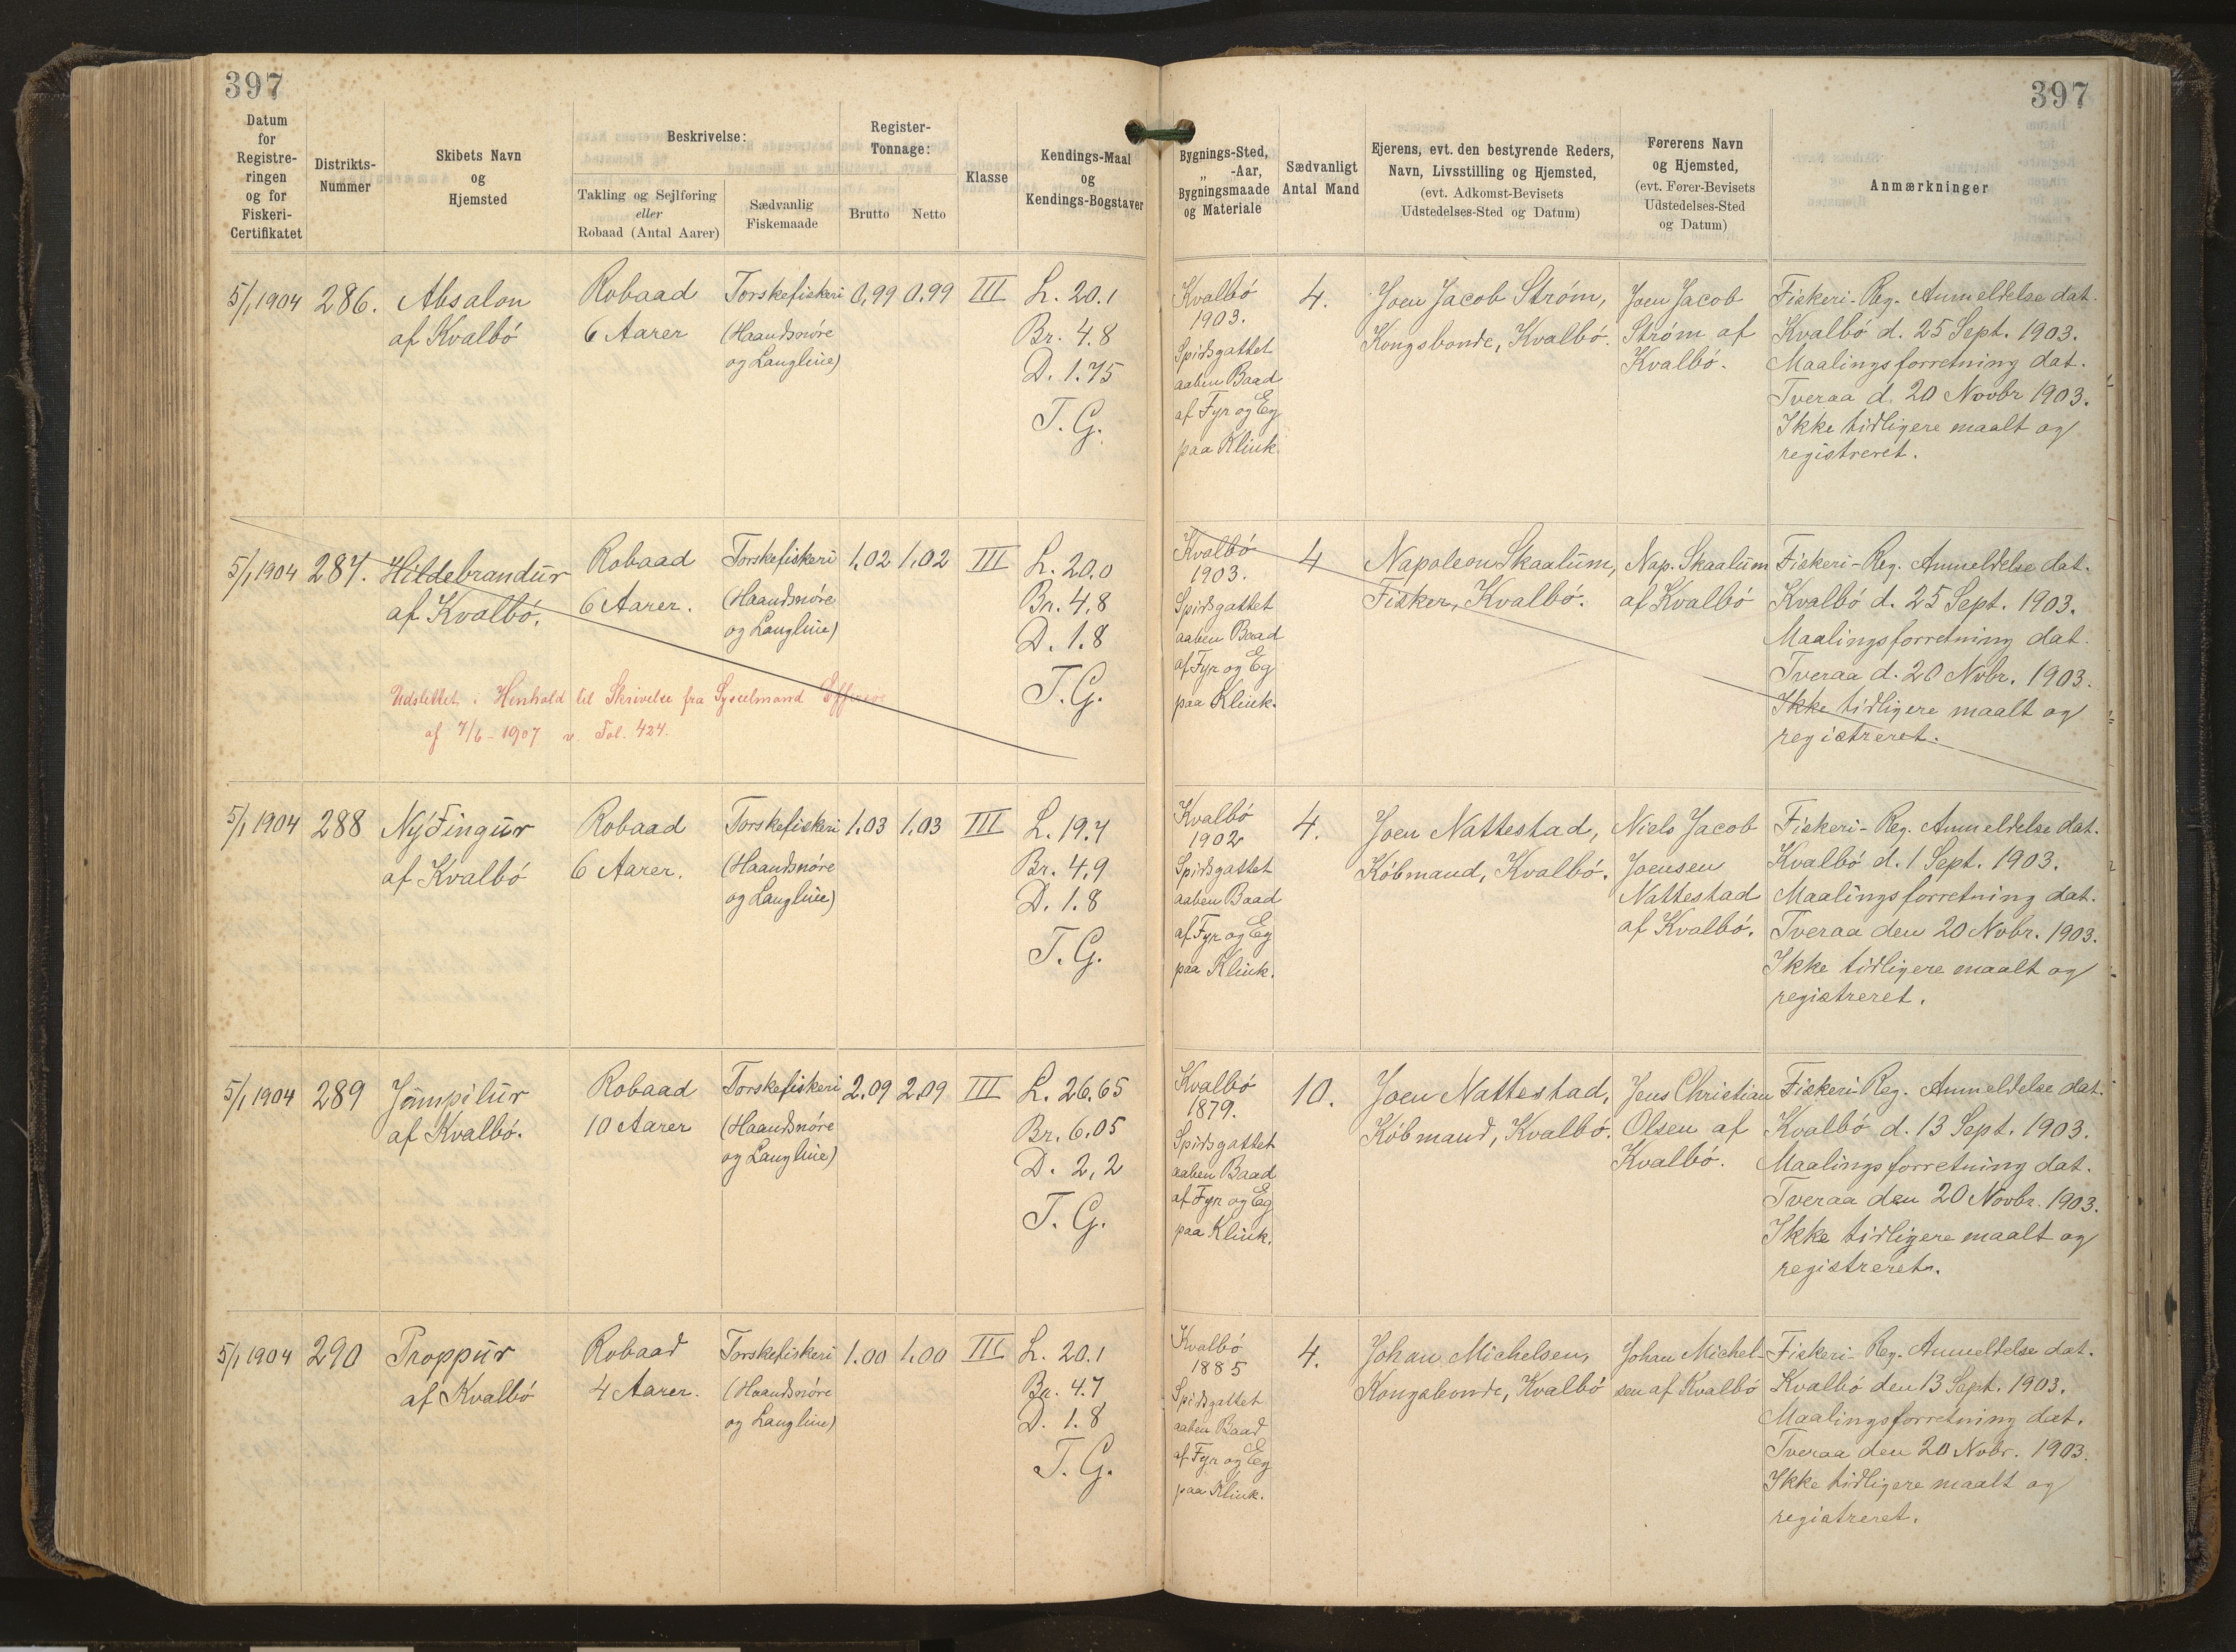 397
397
Datum
for
Registre-
ringen
og for
Fiskeri-
Certifikatet
Distrikts-
Nummer
Skibets Navn
og
Hjemsted
Beskrivelse:
Takling og Sejlføring
eller
Robaad (Antal Aarer)
Sædvanlig
Fiskemaade
Register-
Tonnage:
Brutto
Netto
Klasse
Kendings-Maal
og
Kendings-Bogstaver
Bygnings-Sted,
„ -Aar,
Bygningsmaade
og Materiale
Sædvanligt
Antal Mand
Ejerens, evt. den bestyrende Reders,
Navn, Livsstilling og Hjemsted,
(evt. Adkomst-Bevisets
Udstedelses-Sted og Datum)
Førerens Navn
og Hjemsted,
(evt. Fører-Bevisets
Udstedelses-Sted
og Datum)
Anmærkninger
5/1 1904
286.
Absalon
af Kvalbö
Robaad
6 Aarer
Torskefiskeri
(Haandsnöre
og Langline)
0,99
0,99
III
L. 20.1
Br. 4.8
D. 1.75
T. G.
Kvalbö
1903.
Spidsgattet
aaben Baad
af Fyr og Eg
paa Klink
4.
Joen Jacob Ström,
Kongsbonde, Kvalbö.
Joen Jacob
Ström af
Kvalbö.
Fiskeri-Reg. Anmeldelse dat.
Kvalbö d. 25 Sept. 1903.
Maalingsforretning dat.
Tveraa d. 20 Novbr 1903.
Ikke tidligere maalt og
registreret.
5/1 1904
287.
Hildebrandur
af Kvalbö.
Robaad
6 Aarer.
Torskefiskeri
(Haandsnöre
og Langline)
1,02
1,02
III
L. 20.0
Br. 4,8
D. 1.8
T. G.
Udslettet i Henhold til Skrivelse fra Sysselmand Effersøe
af 7/6-1907 v. Fol. 424.
Kvalbö
1903.
Spidsgattet
aaben Baad
af Fyr og Eg
paa Klink.
4
Napoleon Skaalum,
Fisker, Kvalbö.
Nap. Skaalum
af Kvalbö
Fiskeri-Reg. Anmeldelse dat.
Kvalbö d. 25 Sept. 1903.
Maalingsforretning dat.
Tveraa d. 20 Nvbr. 1903.
Ikke tidligere maalt og
registreret.
5/1 1904
288
Nýðingur
af Kvalbö
Robaad
6 Aarer.
Torskefiskeri
(Haandsnöre
og Langline)
1,03
1,03
III
L. 19.7
Br. 4,9
D. 1.8
T. G.
Kvalbö
1902
Spidsgattet
aaben Baad
af Fyr og Eg
paa Klink.
4.
Joen Nattestad,
Köbmand, Kvalbö.
Niels Jacob
Joensen
Nattestad
af Kvalbö.
Fiskeri-Reg. Anmeldelse dat.
Kvalbö d. 1 Sept. 1903.
Maalingsforretning dat.
Tveraa den 20 Nvbr. 1903.
Ikke tidligere maalt og
registreret.
5/1 1904
289
af Kvalbö.
Robaad
10 Aarer
Torskefiskeri
(Haandsnöre
og Langline)
2,09
2,09
III
L. 26.65
Br. 6.05
D. 2,2
T. G.
Kvalbö
1879.
Spidsgattet
aaben Baad
af Fyr og Eg
paa Klink.
10.
Joen Nattestad,
Köbmand, Kvalbö.
Jens Christian
Olsen af
Kvalbö.
Fiskeri-Reg. Anmeldelse dat.
Kvalbö d. 13 Sept. 1903.
Maalingsforretning dat.
Tveraa den 20 Novbr. 1903.
Ikke tidligere maalt og
registreret.
5/1 1904
290
Proppur
af Kvalbö
Robaad
4 Aarer.
Torskefiskeri
(Haandsnöre
og Langline)
1.00
1.00
III
L. 20.1
Br. 4.7
D. 1.8
T. G.
Kvalbö
1885
Spidsgattet
aaben Baad
af Fyr og Eg
paa Klink.
4.
Johan Michelsen,
Kongsbonde, Kvalbö
Johan Michel-
sen af Kvalbö
Fiskeri-Reg. Anmeldelse dat.
Kvalbö den 13 Sept. 1903.
Maalingsforretning dat.
Tveraa den 20 Nvbr. 1903.
Ikke tidligere maalt og
registreret.